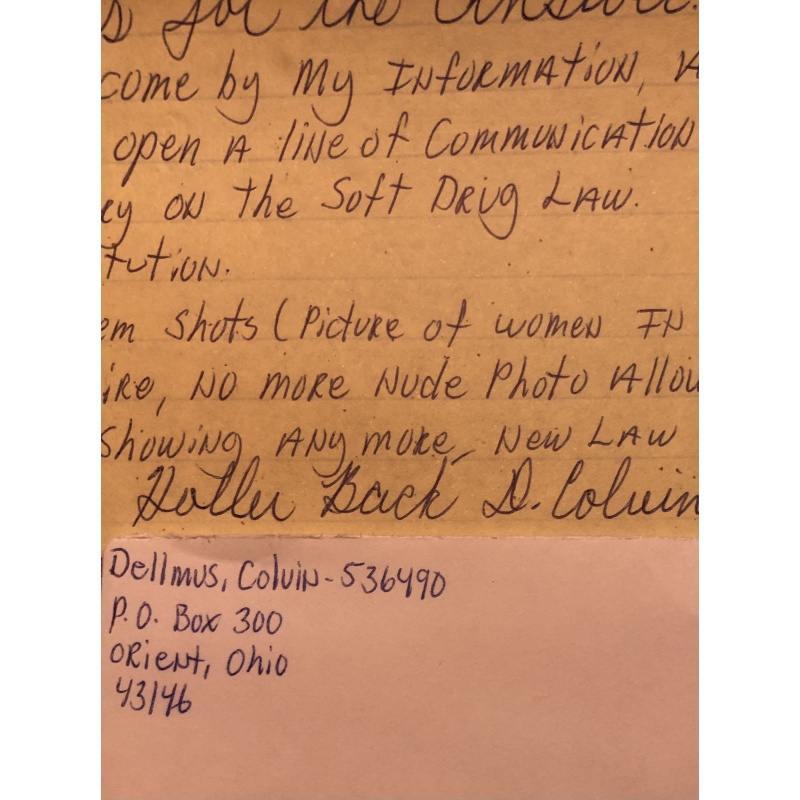 s for the answer.
come by My INformation, 
open A line of Communication
ey on the Soft Drug Law.
tution.
em Shots (Picture of women IN
ire, No more Nude Photo Allow
Showing Any more, New Law
Holler Back D. Colvin
Dellmus, Colvin-536490
P.O. Box 300
Orient, Ohio
43146